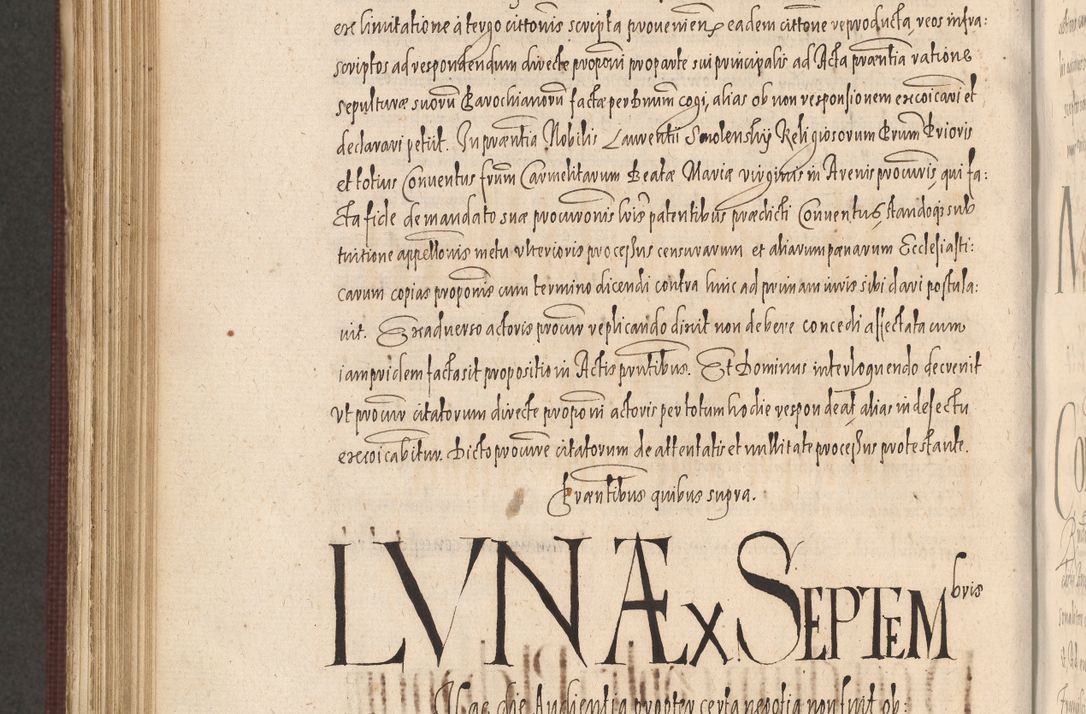 ex limitatione à tergo cittonis scripta provenien, eadem cittone reproducta, reos infra:
scriptos ad respondendum directe proponi pro parte sui principalis ad Acta præntia ratione
sepulturæ suorũ Parochianorũ factæ per Dnum cogi, alias ob non responsionem excoicari et
declarari petiit. In præntia Nobilis Laurentii Smolenskij Religiosorum Prum Prioris
et totius Conventus frum Carmelitarum Beatæ Mariæ virginis in Arenis procuris, qui fa:
cta fide de mandato suæ procuronis lris patentibus prædicti Conventus, stando qs sub
tuitione appellonis metu ulterioris processus censurarum et aliarum pænarum Ecclesiasti:
carum copias proponis cum termino dicendi contra hinc ad primam iuris sibi dari postula:
vit. Ex adverso actoris procur replicando dixit non debere concedi affectata cum
iampridem facta sit propositio in Actis pntibus. Et Dominus interloquendo decrevit
ut procur citatorum directe proponi actoris per totum hodie respondeat alias in defectu
excoicabitur. Dicto procure citatorum de attentatis et nullitate processus protestante.
Præntibus quibus supra.
LVNÆ X SEPTEMbris
Hac die Audientia propter certa negotia non fuit ob: